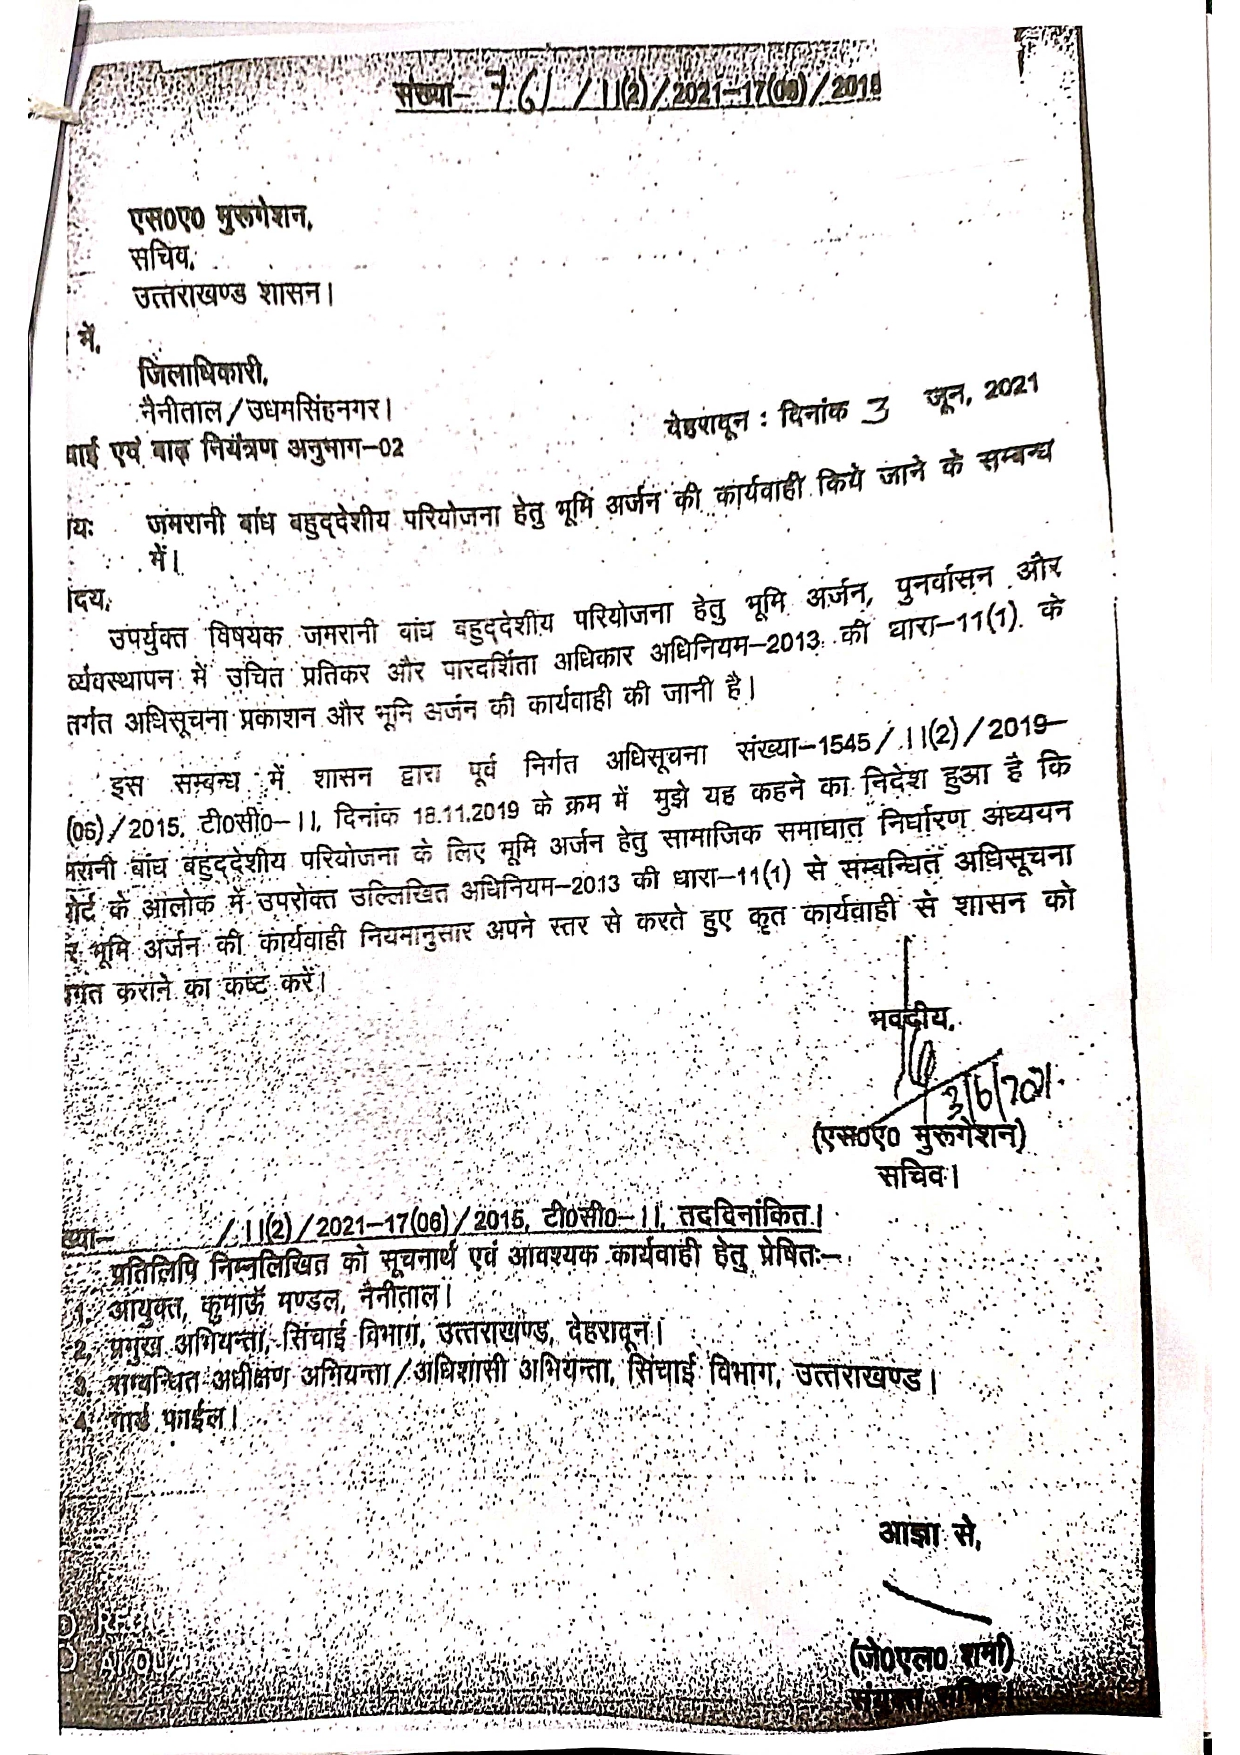 संख्या- 761 /।।(2)/2021-17(06)/2015
एस0ए0 मुरूगेशन,
सचिव,
उत्तराखण्ड शासन।
में,
जिलाधिकारी,
नैनीताल/उधमसिंहनगर।
देहरादून : दिनांक 3 जून, 2021
चाई एवं बाढ़ नियंत्रण अनुभाग-02
यः जमरानी बांध बहुद्देशीय परियोजना हेतु भूमि अर्जन की कार्यवाही किये जाने के सम्बन्ध
में।
ोदय,
उपर्युक्त विषयक जमरानी बांध बहुद्देशीय परियोजना हेतु भूमि अर्जन, पुनर्वासन और
र्व्यवस्थापन में उचित प्रतिकर और पारदर्शिता अधिकार अधिनियम-2013 की धारा-11(1) के
तर्गत अधिसूचना प्रकाशन और भूमि अर्जन की कार्यवाही की जानी है।
इस सम्बन्ध में शासन द्वारा पूर्व निर्गत अधिसूचना संख्या-1545/।।(2)/2019-
(06)/2015, टी0सी0-।।, दिनांक 18.11.2019 के क्रम में मुझे यह कहने का निदेश हुआ है कि
मरानी बांध बहुद्देशीय परियोजना के लिए भूमि अर्जन हेतु सामाजिक समाघात निर्धारण अध्ययन
ोर्ट के आलोक में उपरोक्त उल्लिखित अधिनियम-2013 की धारा-11(1) से सम्बन्धित अधिसूचना
र भूमि अर्जन की कार्यवाही नियमानुसार अपने स्तर से करते हुए कृत कार्यवाही से शासन को
गत कराने का कष्ट करें।
भवदीय,
3/6/2021
(एस0ए0 मुरूगेशन)
सचिव।
ख्या- /।।(2)/2021-17(06)/2015, टी0सी0-।।, तददिनांकित।
प्रतिलिपि निम्नलिखित को सूचनार्थ एवं आवश्यक कार्यवाही हेतु प्रेषितः-
1. आयुक्त, कुमाऊँ मण्डल, नैनीताल।
2. प्रमुख अभियन्ता, सिंचाई विभाग, उत्तराखण्ड, देहरादून।
3. सम्बन्धित अधीक्षण अभियन्ता/अधिशासी अभियन्ता, सिंचाई विभाग, उत्तराखण्ड।
4. गार्ड फाईल।
आज्ञा से,
(जे0एल0 शर्मा)
संयुक्त सचिव।